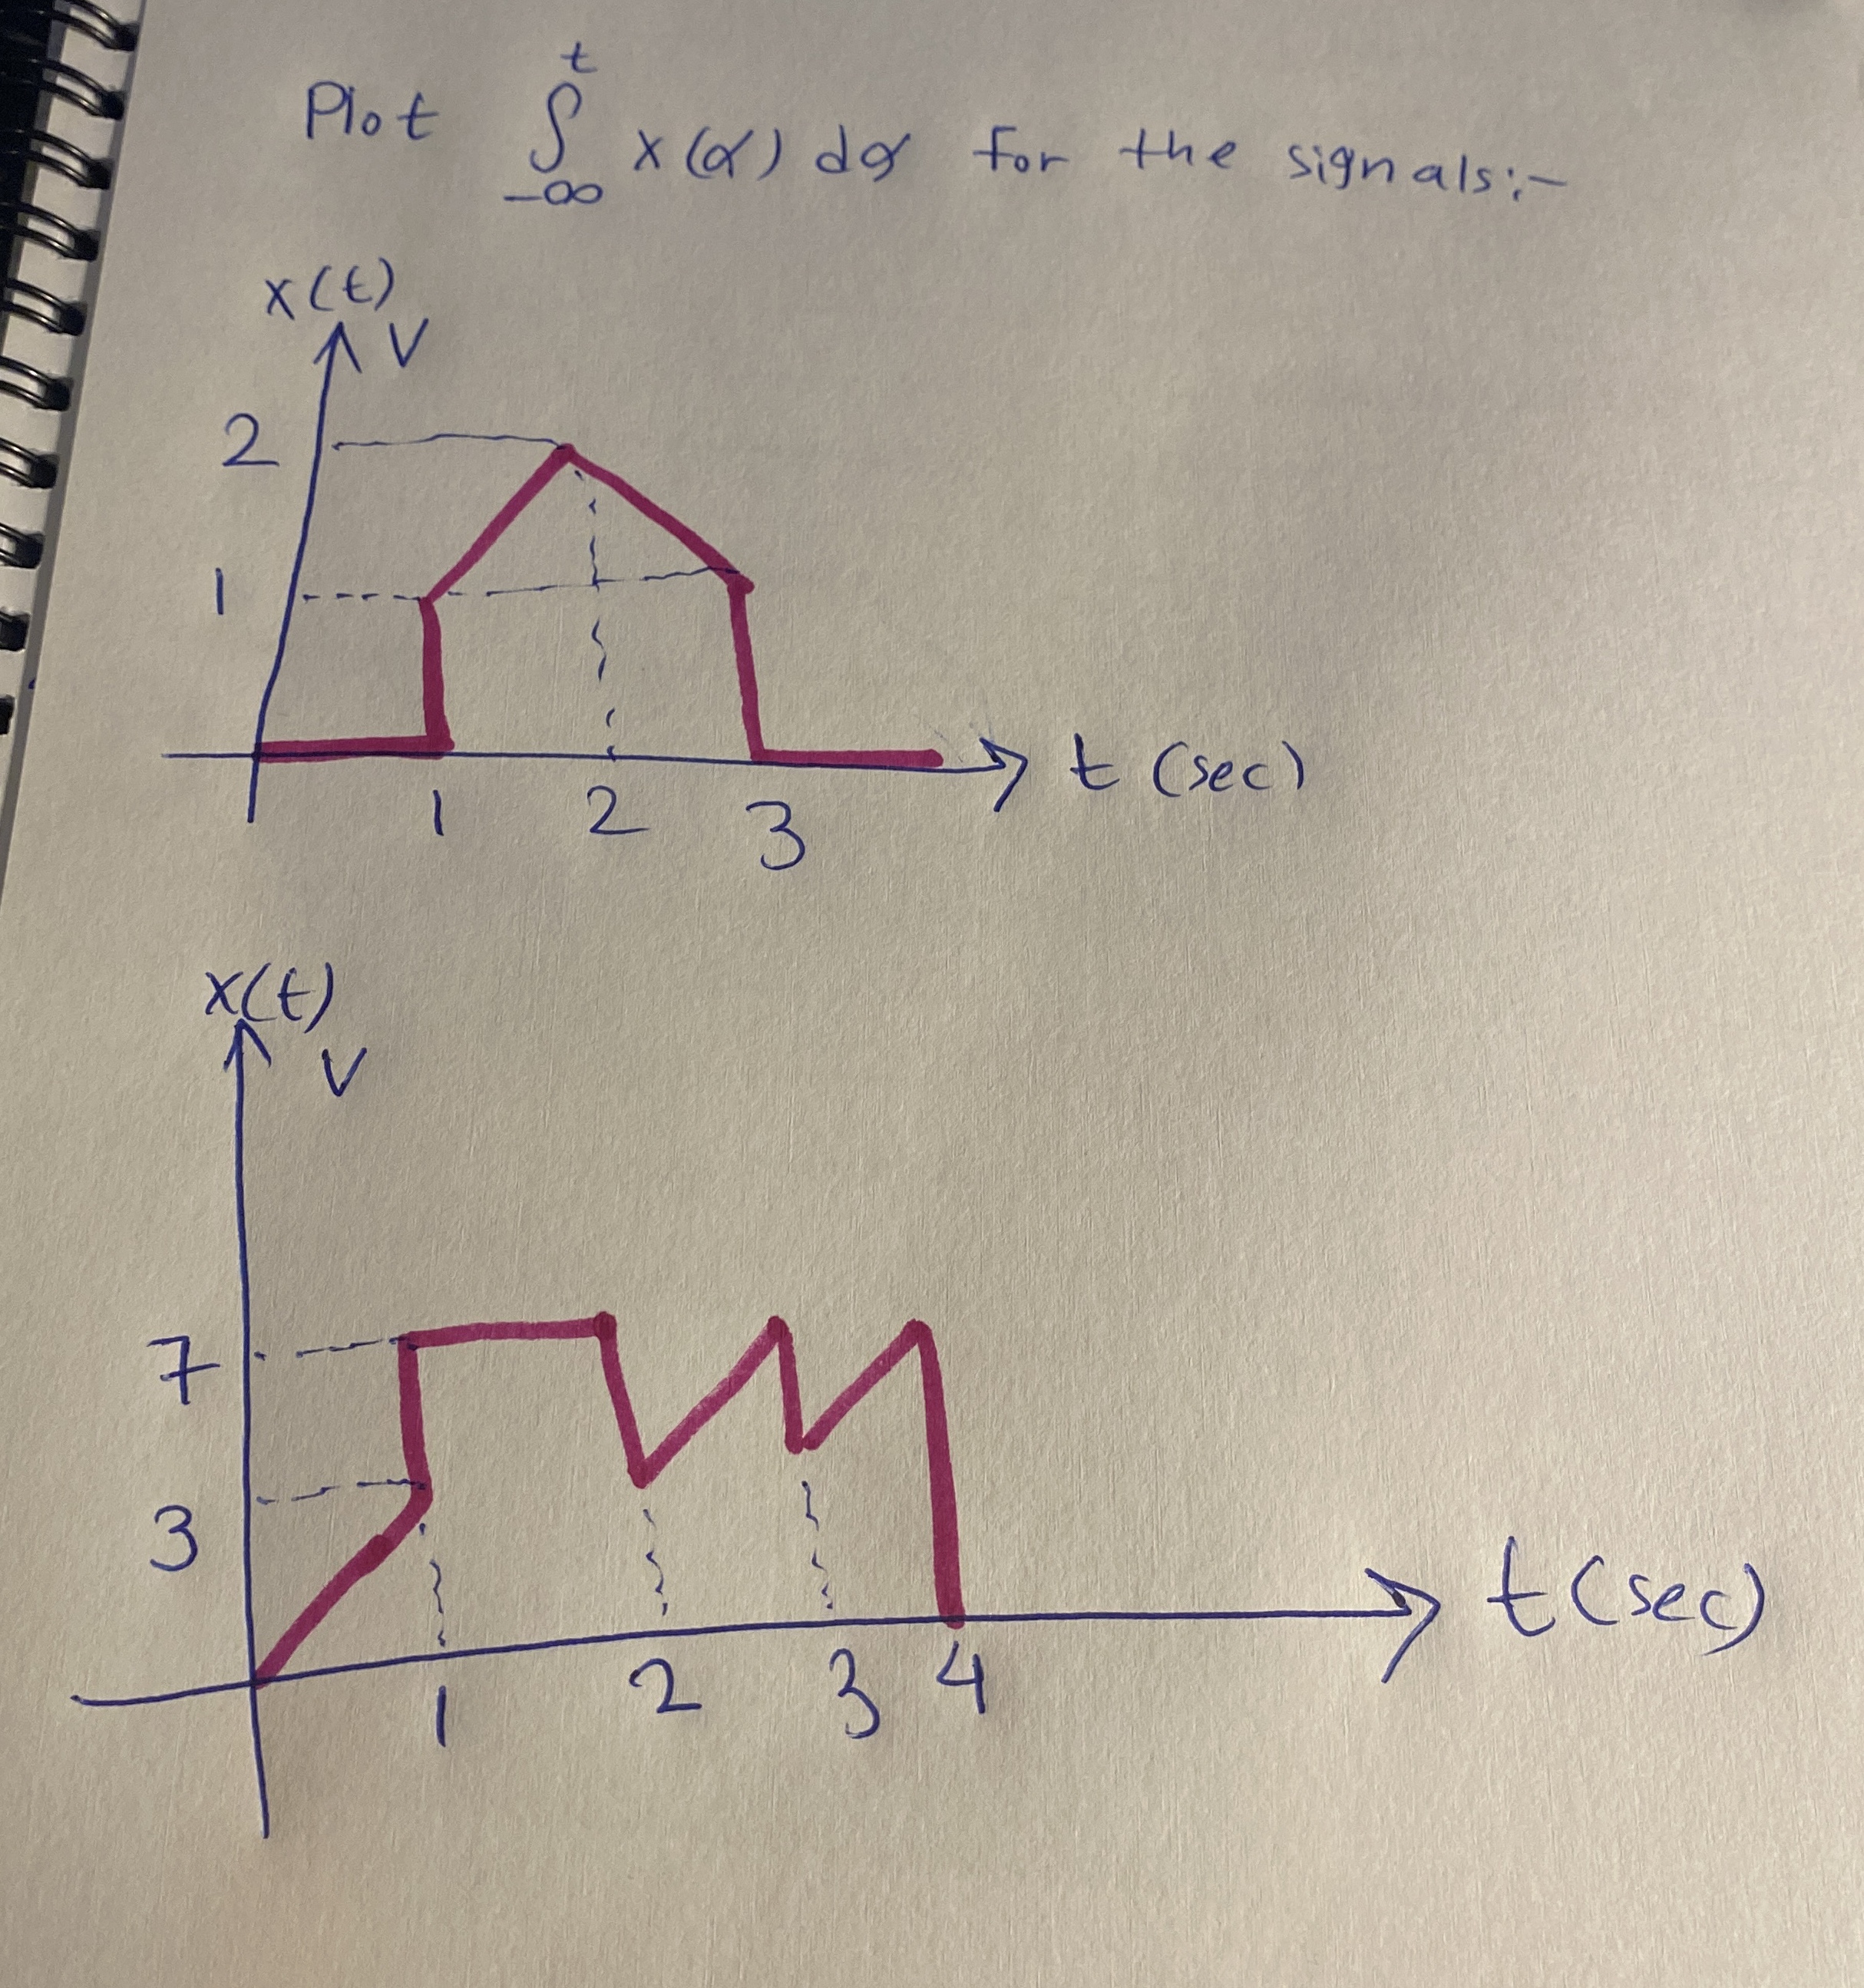 Plot ∫ x(α) dα for the signals:-
t
-∞
x(t)
V
2
1
1 2 3
t (sec)
x(t)
V
7
3
1 2 3 4
t (sec)